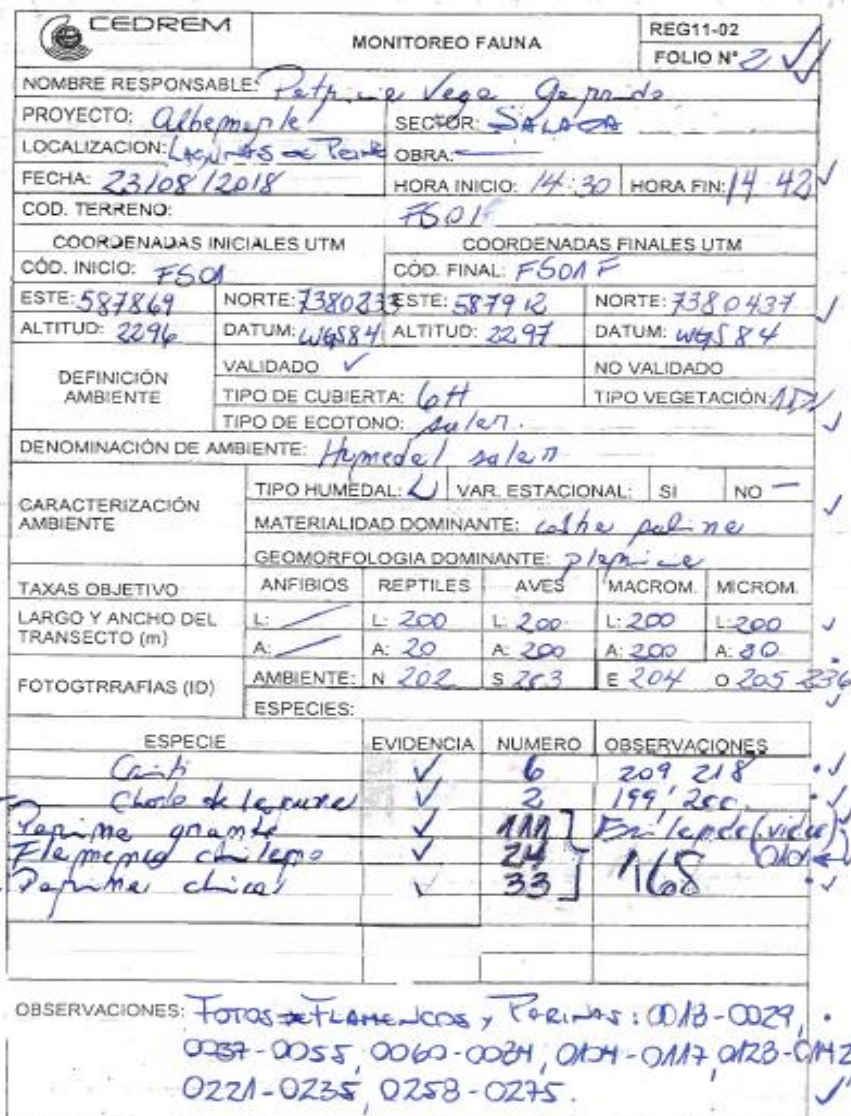 CEDREM
MONITOREO FAUNA
REG11-02
FOLIO N° 2
NOMBRE RESPONSABLE: Patricia Vega
PROYECTO: Albemarle SECTOR: SALADA
LOCALIZACION: LAGUNAS DE PEINE OBRA: —
FECHA: 23/08/2018 HORA INICIO: 14:30 HORA FIN: 14 42
COD. TERRENO: FS01F
COORDENADAS INICIALES UTM COORDENADAS FINALES UTM
CÓD. INICIO: FS01 CÓD. FINAL: FS01F
ESTE: 587869 NORTE: 7380233 ESTE: 587912 NORTE: 7380437
ALTITUD: 2296 DATUM: WGS84 ALTITUD: 2297 DATUM: WGS84
DEFINICIÓN AMBIENTE
VALIDADO ✓ NO VALIDADO
TIPO DE CUBIERTA: TIPO VEGETACIÓN:
TIPO DE ECOTONO: salar.
DENOMINACIÓN DE AMBIENTE: Humedal salar
CARACTERIZACIÓN AMBIENTE
TIPO HUMEDAL: L VAR. ESTACIONAL: SI NO —
MATERIALIDAD DOMINANTE: costra salina
GEOMORFOLOGIA DOMINANTE: planicie
TAXAS OBJETIVO ANFIBIOS REPTILES AVES MACROM. MICROM.
LARGO Y ANCHO DEL TRANSECTO (m)
L: / L: 200 L: 200 L: 200 L: 200
A: / A: 20 A: 200 A: 200 A: 80
FOTOGTRRAFIAS (ID)
AMBIENTE: N 202 S 203 E 204 O 205 236
ESPECIES:
ESPECIE EVIDENCIA NUMERO OBSERVACIONES
Caiti ✓ 6 209 218
Chorlo de la puna ✓ 2 199, 200
Parina grande ✓ 111 (video)
Flamenco chileno ✓ 24 0101
Parina chica ✓ 33 168
OBSERVACIONES: FOTOS DE FLAMENCOS y PARINAS: 0013-0029,
0037-0055, 0060-0084, 0104-0117, 0123-0142
0221-0235, 0258-0275.